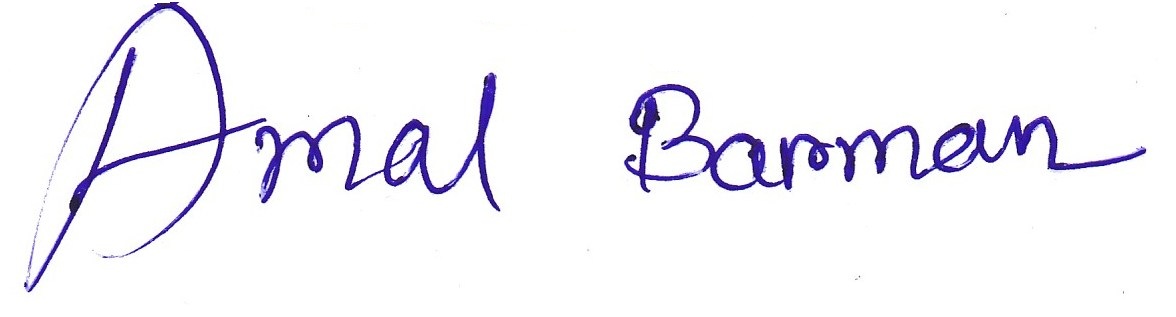 Amal Barman